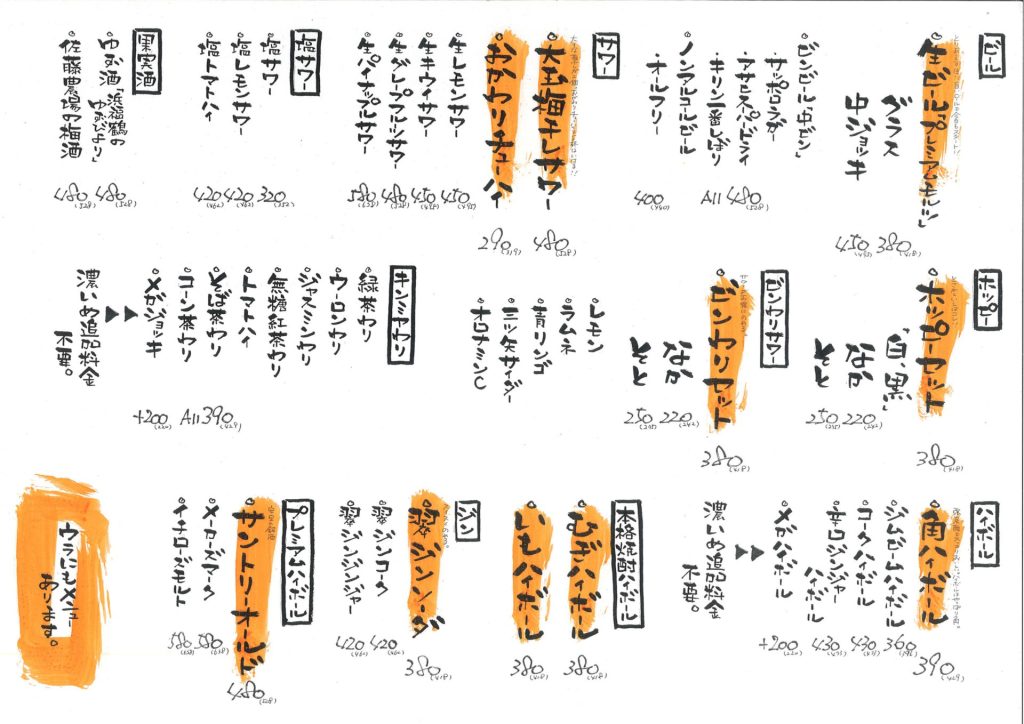 ビール
生ビール「プレミアムモルツ」
グラス 380(418)
中ジョッキ 450(495)
ビンビール「中ビン」
・サッポロラガー
・アサヒスーパードライ
・キリン一番しぼり
All 480(528)
ノンアルコールビール
オールフリー 400(440)
サワー
大玉梅干しサワー 480(528)
おかわりチューハイ 290(319)
生レモンサワー 450(495)
生キウイサワー 450(495)
生グレープフルーツサワー 480(528)
生パイナップルサワー 580(638)
塩サワー
塩サワー 320(352)
塩レモンサワー 420(462)
塩トマトハイ 420(462)
果実酒
ゆず酒「浜福鶴の
ゆずびより」 480(528)
佐藤農場の梅酒 480(528)
ホッピー
ホッピーセット 380(418)
「白、黒」
なか 220(242)
そと 250(275)
ビンワリサワー
ビンワリセット 380(418)
なか 220(242)
そと 250(275)
レモン
ラムネ
青リンゴ
三ツ矢サイダー
オロナミンC
キンミヤワリ
緑茶ワリ
ウーロンワリ
ジャスミンワリ
無糖紅茶ワリ
トマトハイ
そば茶ワリ
コーン茶ワリ
All 390(429)
メガジョッキ +200(220)
▶▶
濃いめ追加料金
不要。
ハイボール
角ハイボール 390(429)
ジムビームハイボール 360(396)
コークハイボール 430(473)
辛口ジンジャー
ハイボール 430(473)
メガハイボール +200(220)
▶▶
濃いめ追加料金
不要。
本格焼酎ハイボール
むぎハイボール 380(418)
いもハイボール 380(418)
ジン
翠ジンソーダ 380(418)
翠ジンコーク 420(462)
翠ジンジンジャー 420(462)
プレミアムハイボール
サントリーオールド 480(528)
メーカーズマーク 580(638)
イチローズモルト 580(638)
ウラにもメニュー
あります。